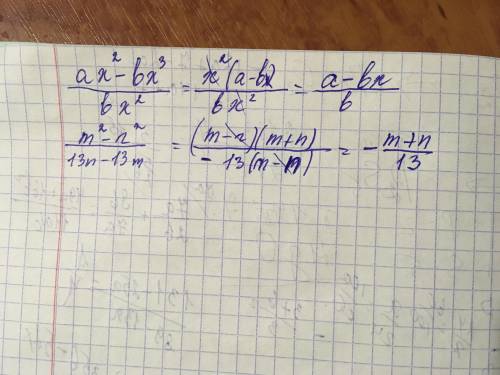 (ax² - bx³)/(bx²) = (x²(a - bx))/(bx²) = (a - bx)/b
(m² - n²)/(13n - 13m) = ((m - n)(m + n))/(- 13(m - n)) = - (m + n)/13